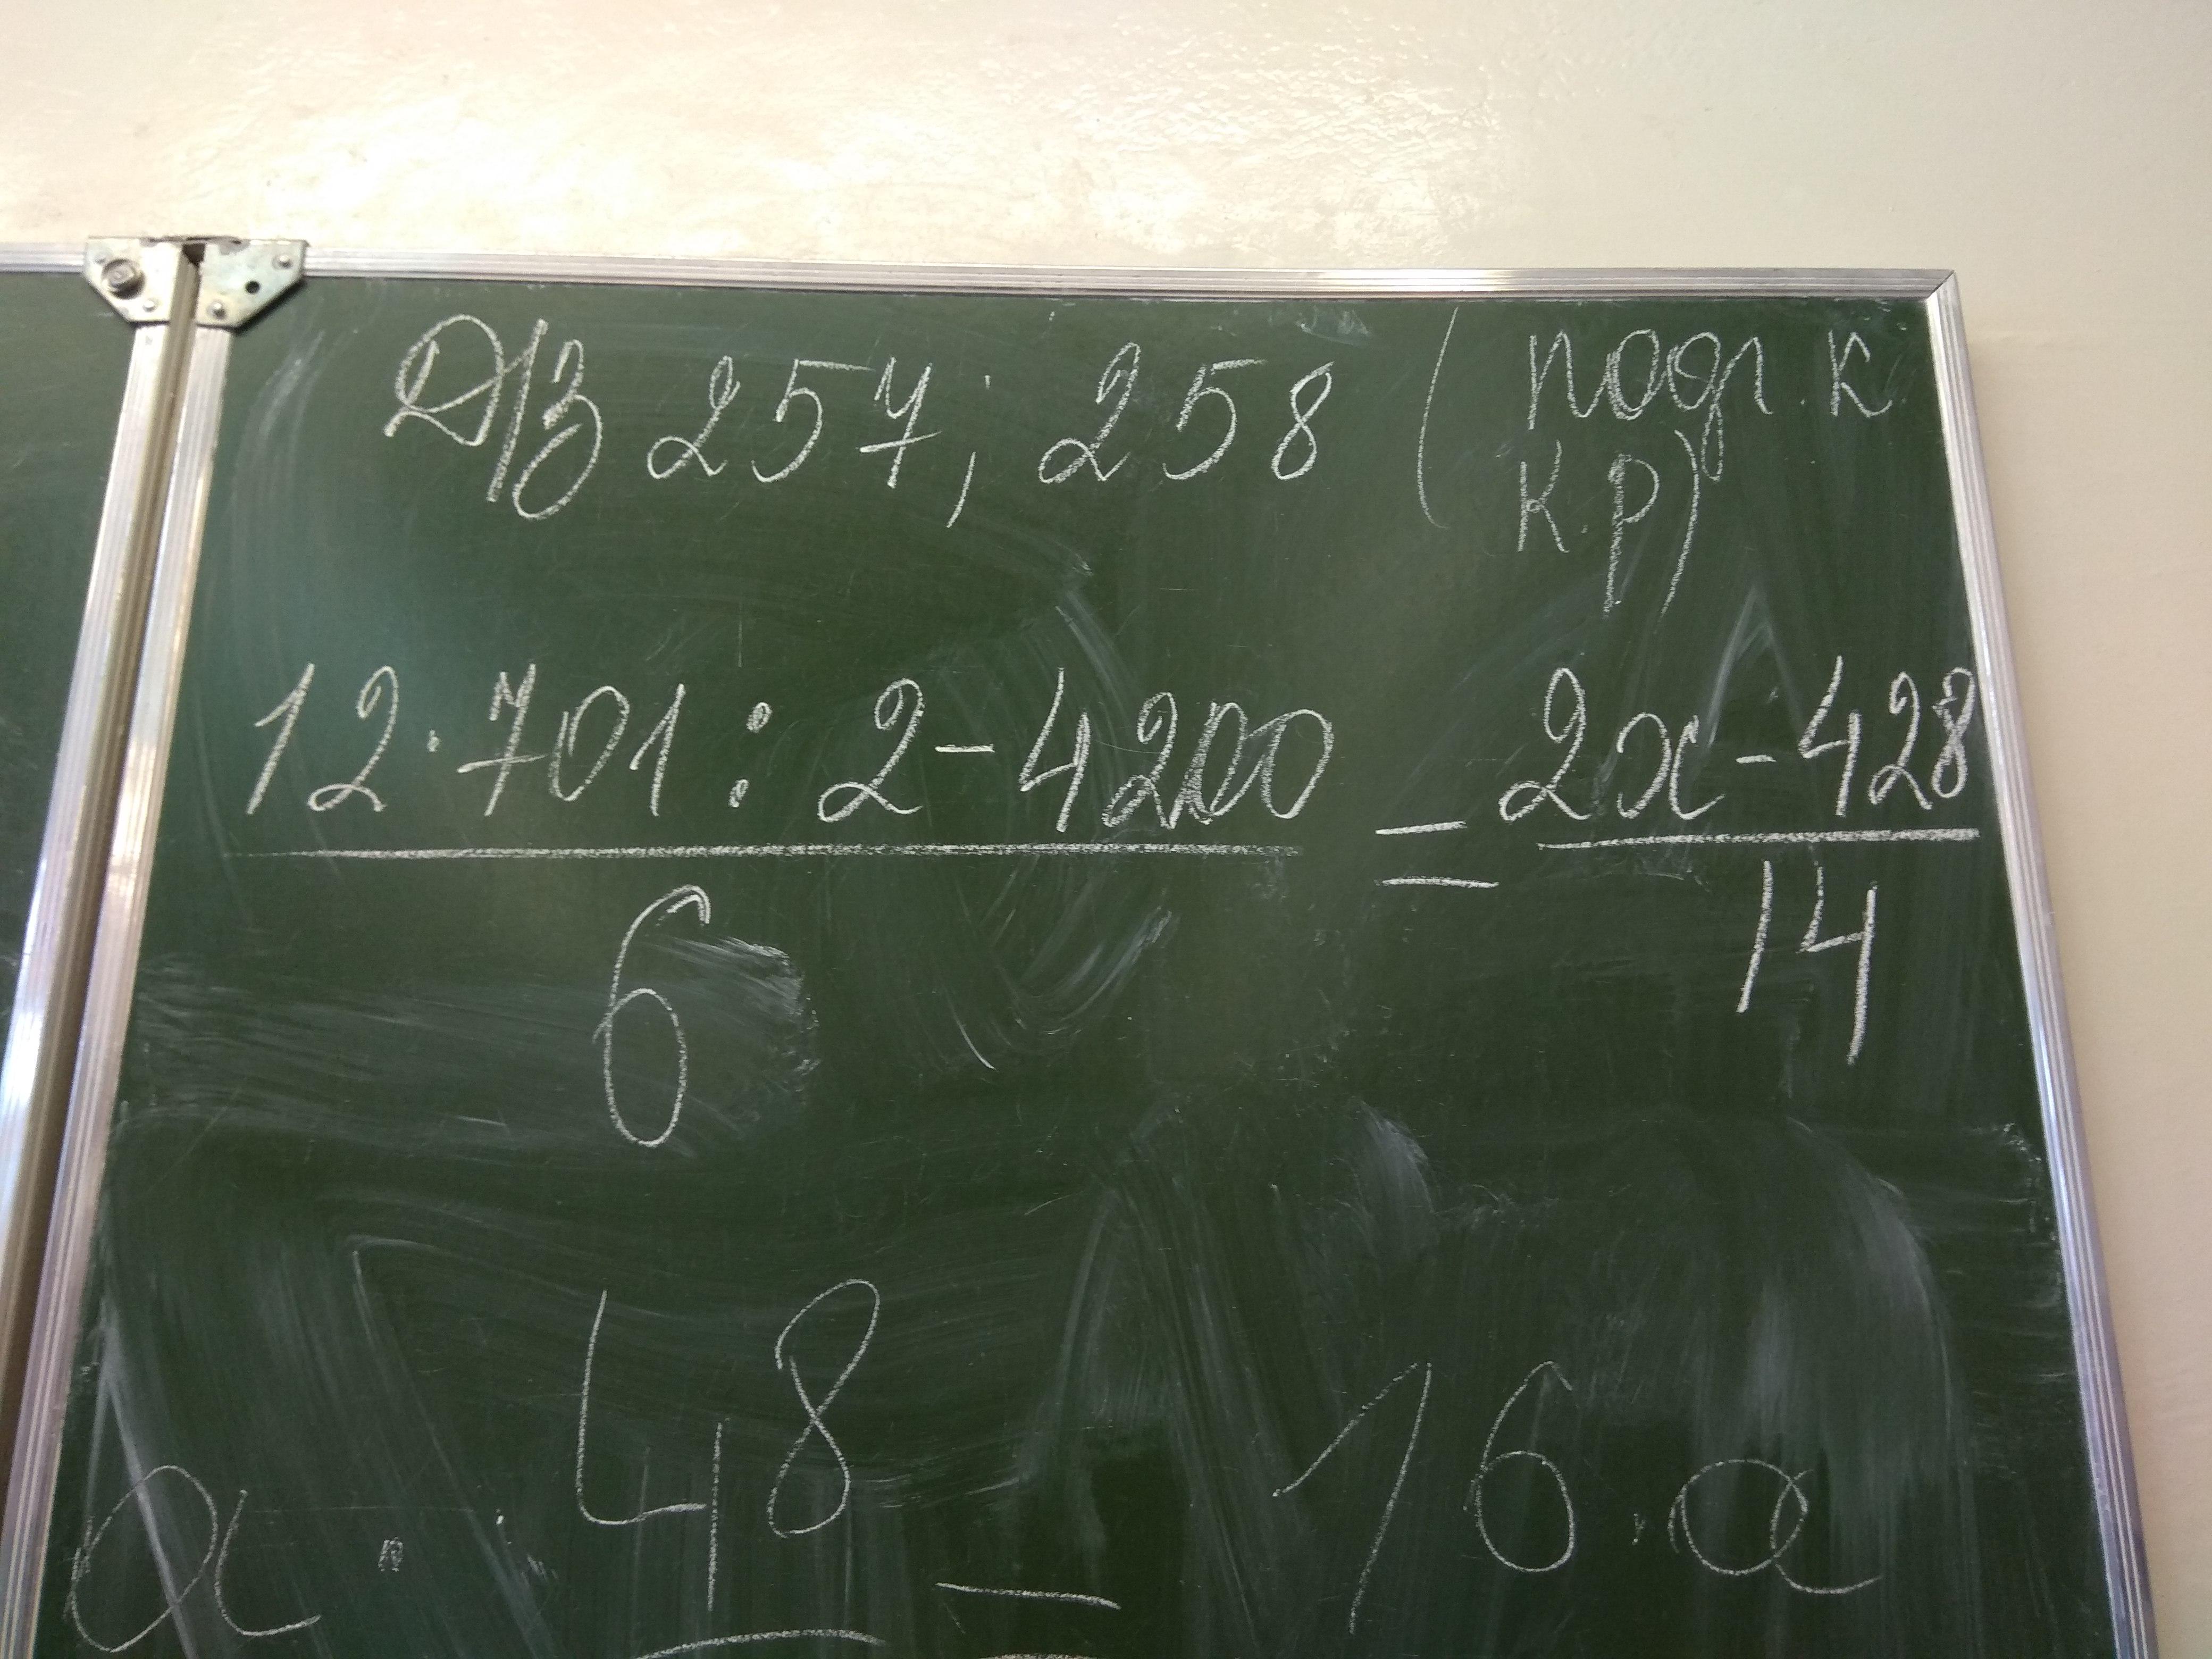 Д/З 257; 258 (подг. к
к.р)
12·701:2-4200 = 2x-428
6 14
a · 48 - 16·a